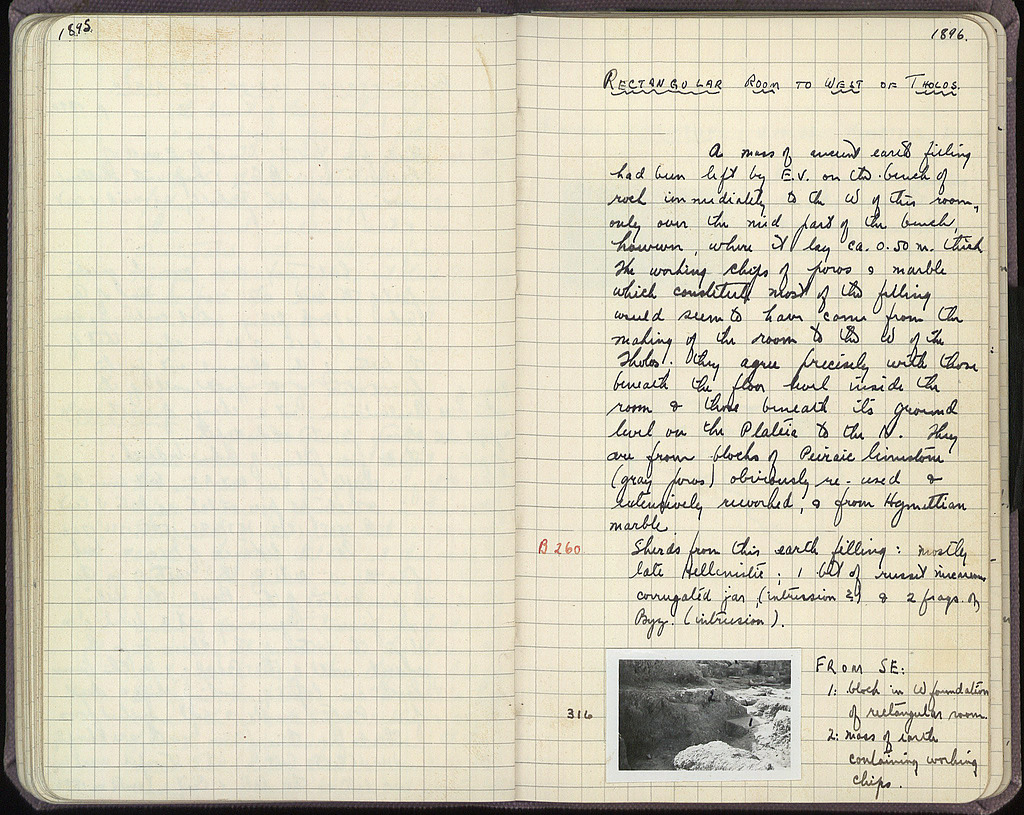 1895.
1896.
RECTANGULAR ROOM TO WEST OF THOLOS.
A mass of ancient earth filling
had been left by E.V. on the bench of
rock immediately to the W of this room,
only over the mid part of the bench,
however, where it lay ca. 0.50 m. thick
The working chips of poros & marble
which constitute most of the filling
would seem to have come from the
making of the room to the W of the
Tholos. They agree precisely with those
beneath the floor level inside the
room & those beneath its ground
level on the Plateia to the N. They
are from blocks of Peiraic limestone
(gray poros) obviously re-used &
extensively reworked, & from Hymettian
marble.
B 260. Sherds from this earth filling: mostly
late Hellenistic; 1 bit of russet
corrugated jar (intrusion?) & 2 frags. of
Byz. (intrusion).
316
FROM SE:
1: block in W foundation
of rectangular room.
2: mass of earth
containing working
chips.